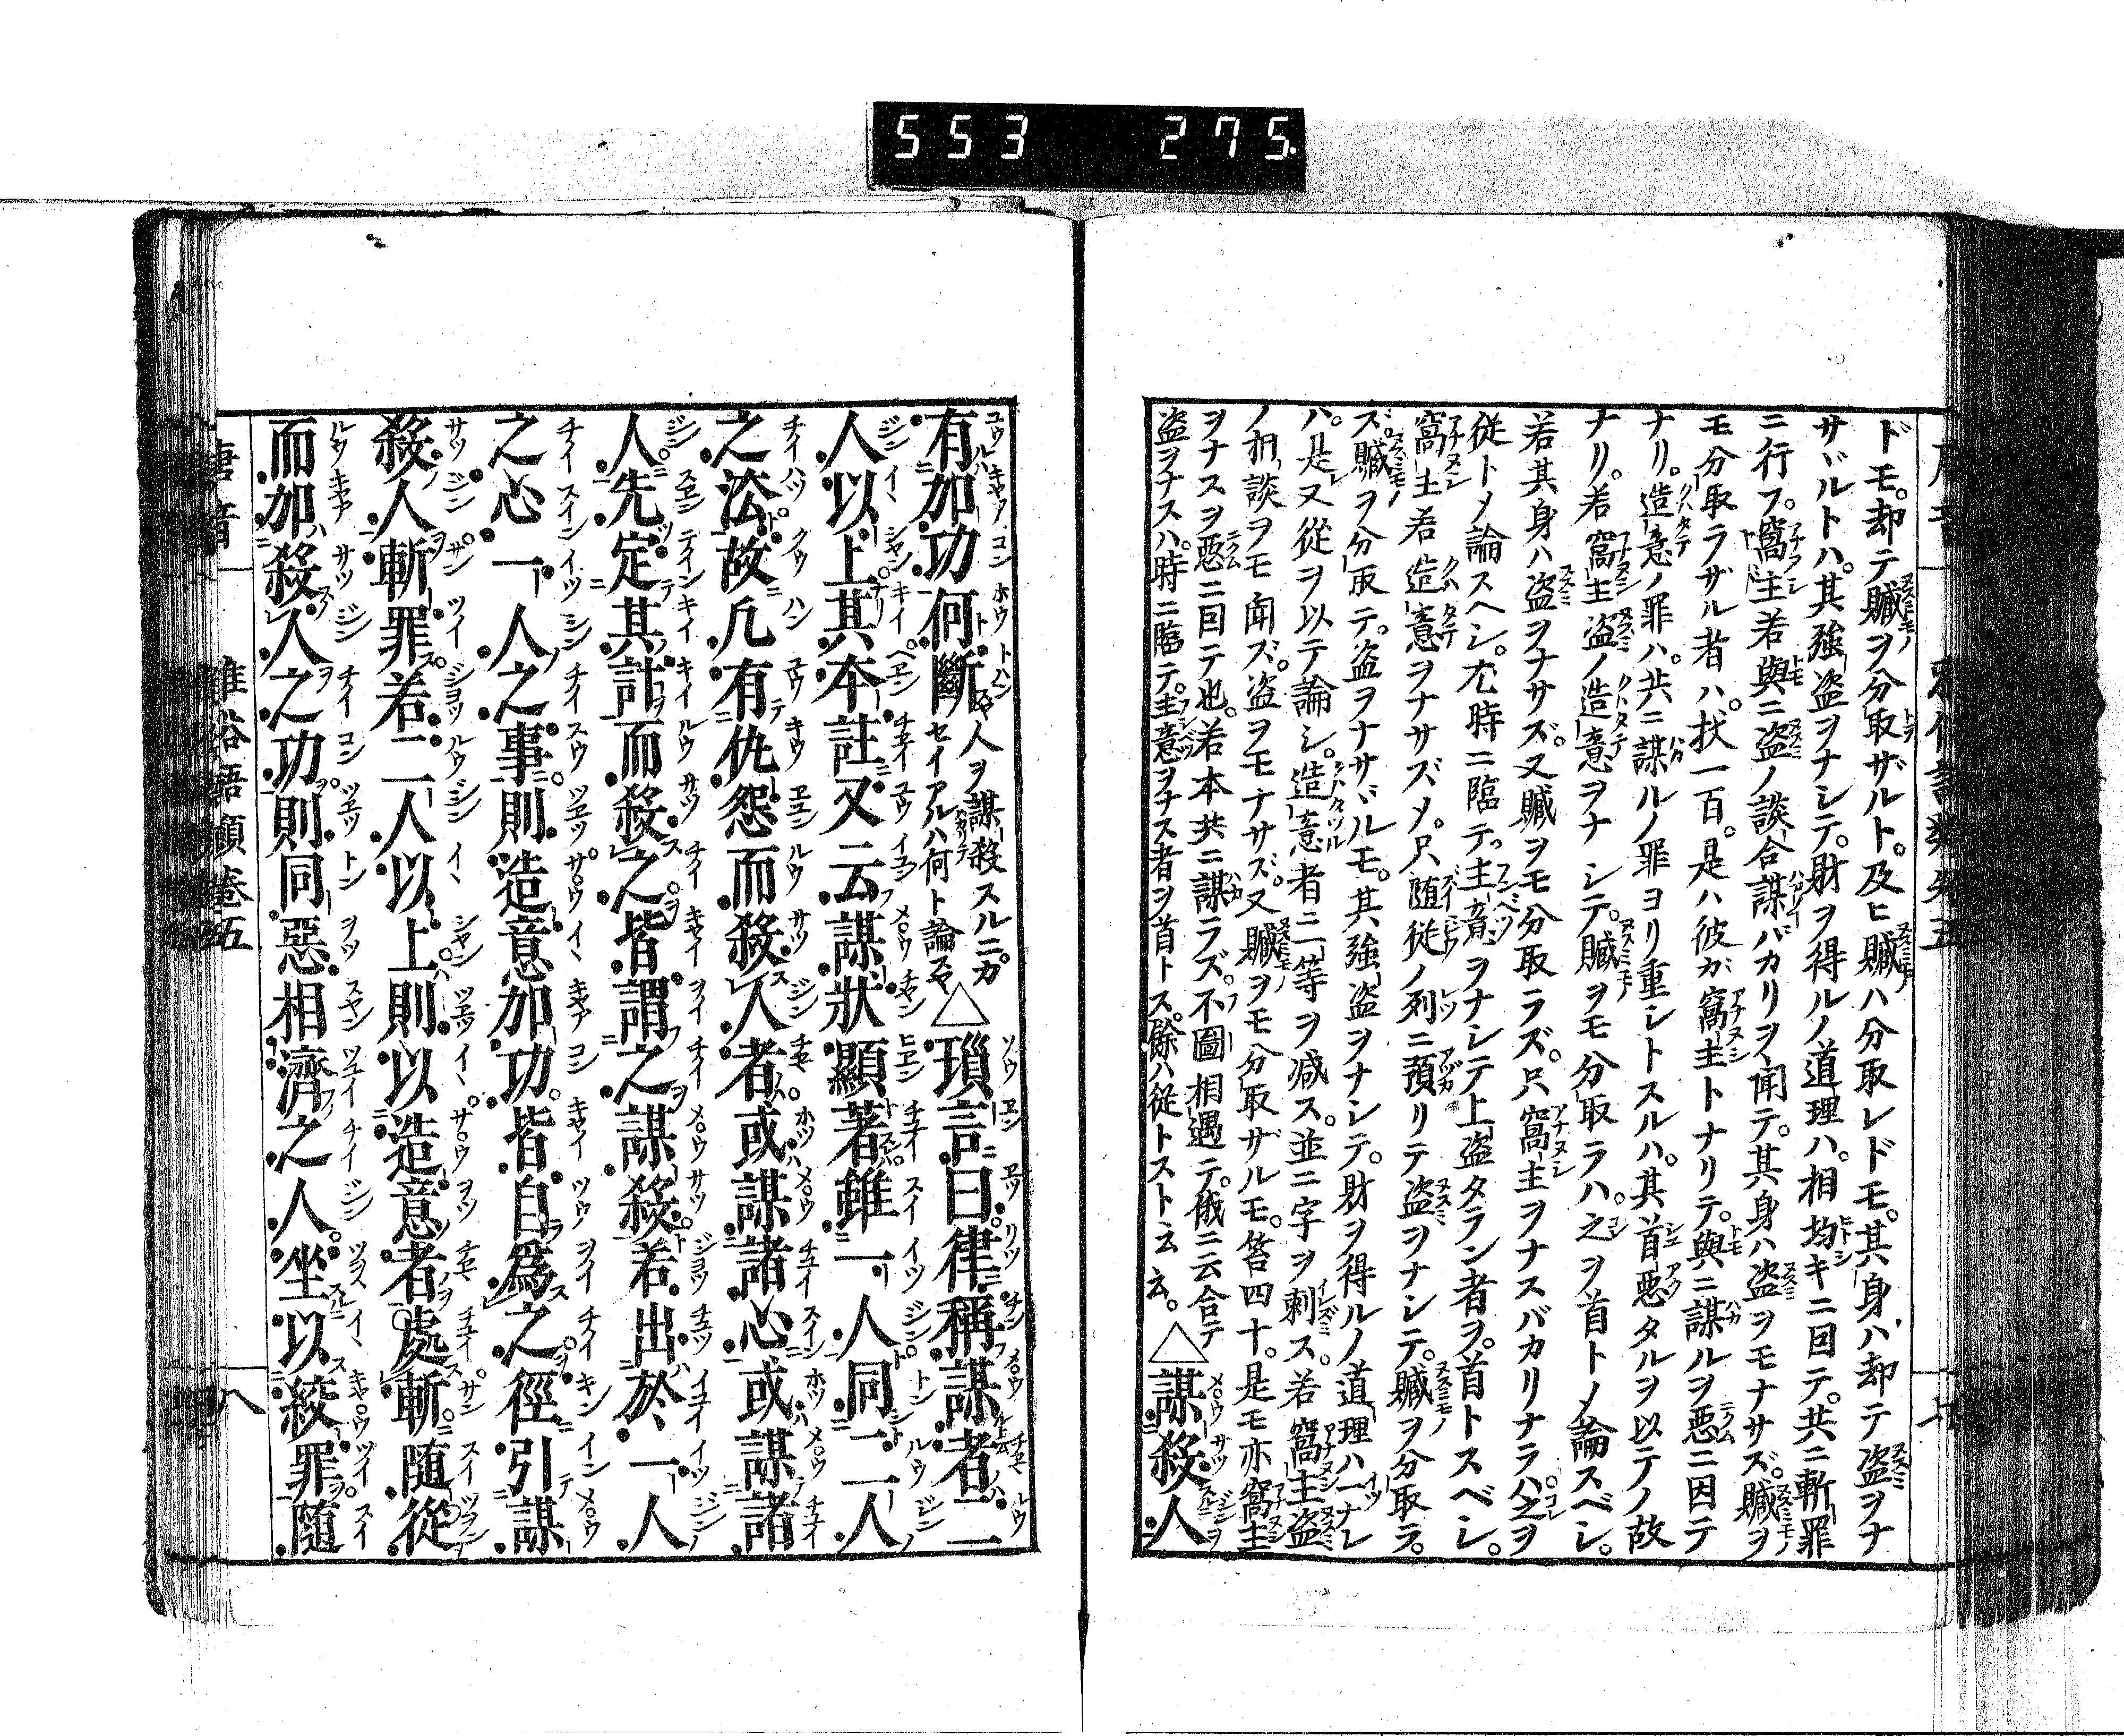 553 275
ドモ。却テ贓ヲ分取ザルト。及ヒ贓ハ分取レドモ。其身ハ却テ盗ヲナ
サヾルトハ。其強盗ヲナシテ。財ヲ得ルノ道理ハ。相均キニ因テ。共ニ斬罪
ニ行フ。窩主若與ニ盗ノ談合謀バカリヲ聞テ。其身ハ盗ヲモナサズ。贓ヲ
モ分取ラザル者ハ。杖一百。是ハ彼ガ窩主トナリテ。與ニ謀ルヲ惡ニ因テ
ナリ。造意ノ罪ハ。共ニ謀ルノ罪ヨリ重シトスルハ。其首惡タルヲ以テノ故
ナリ。若窩主盗ノ造意ヲナシテ。贓ヲモ分取ラハ。之ヲ首トメ論スベシ。
若其身ハ盗ヲナサズ。又贓ヲモ分取ラズ。只窩主ヲナスバカリナラハ。之ヲ
従トメ論スヘシ。尤時ニ臨テ。主意ヲナシテ上盗タラン者ヲ。首トスベシ。
窩主若造意ヲナサズメ。只随従ノ列ニ預リテ盗ヲナシテ。贓ヲ分取ラ
ズ。贓ヲ分取テ。盗ヲナサヾルモ。其強盗ヲナシテ。財ヲ得ルノ道理ハ一ナレ
ハ。是又従ヲ以テ論シ。造意者ニ一等ヲ减ス。並ニ字ヲ刺ス。若窩主盗
ノ相談ヲモ聞ズ。盗ヲモナサズ。又贓ヲモ分取ザルモ。笞四十。是モ亦窩主
ヲナスヲ惡ニ因テ也。若本共ニ謀ラズ。不圖相遇テ。俄ニ云合テ
盗ヲナスハ。時ニ臨テ。主意ヲナス者ヲ首トス。餘ハ従トスト云云。△謀殺人
有加功何斷 人ヲ謀殺スルニカセイアルハ何ト論スヤ △瑣言曰律稱謀者二
人以上其本註又云謀狀顯著雖一人同二人
之法故凡有仇怨而殺人者或謀諸心或謀諸
人先定其計而殺之皆謂之謀殺若出於一人
之心一人之事則造意加功皆自爲之徑引謀
殺人斬罪若二人以上則以造意者處斬随從
而加殺人之功則同惡相濟之人坐以絞罪随
唐音 雅俗語類 巻五 八